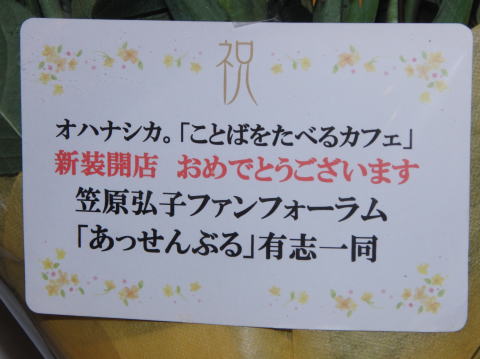 祝
オハナシカ。「ことばをたべるカフェ」
新装開店 おめでとうございます
笠原弘子ファンフォーラム
「あっせんぶる」有志一同